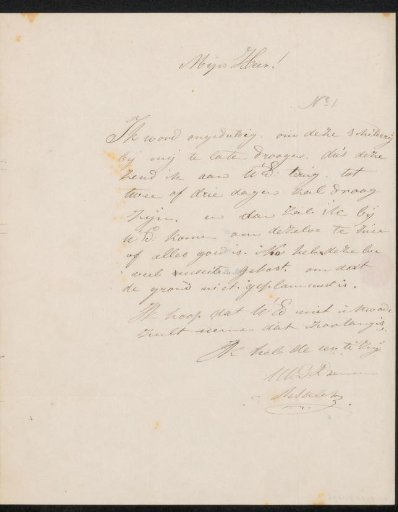 Mijn Heer!
No 1
Ik word ongeduldig om deze schilderij
bij mij te late droogen, dus deze
zend ik aan UE terug, tot
twee of drie dagen zal droog
zijn, en dan zal ik bij
UE komen om dezelve te zien
of alles goed is. Ik heb deze
veel moeite gehad, om dat
de grond niet geplamuurd is.
Ik hoop dat UEd niet
zult nemen dat zoo lang is,
Ik heb de eer te zijn
UEd